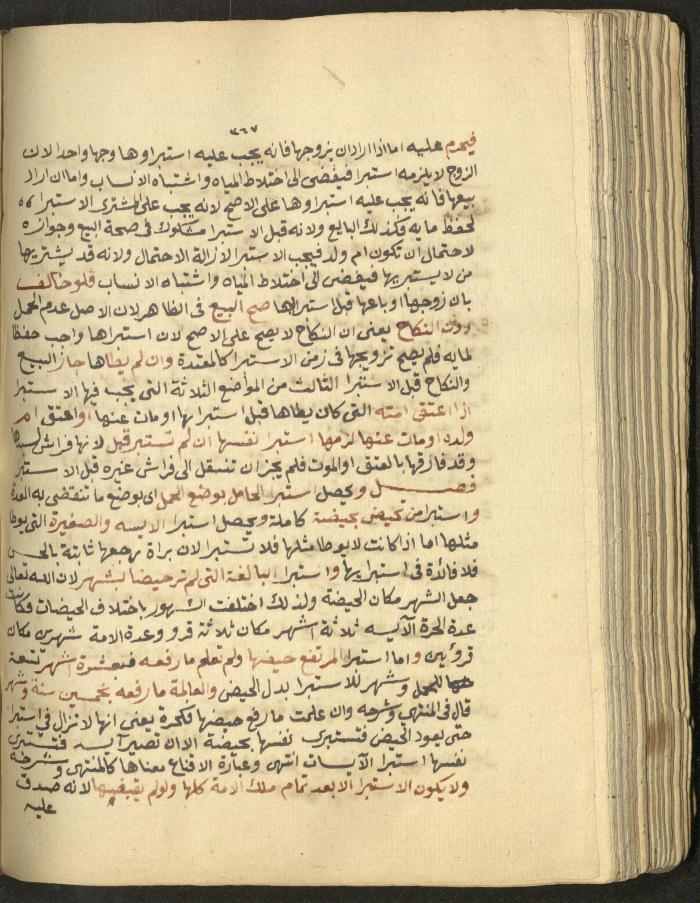 ٣٦٧
فيحرم عليه اما اذا اراد ان يزوجها فانه يجب عليه استبراوها وجها واحدا لان
الزوج لا يلزمه استبرا فيفضى الى اختلاط المياه واشتباه الانساب واما ان اراد
بيعها فانه يجب عليه استبراوها على الاصح لانه يجب على المشترى الاستبرا
لحفظ مايه فكذلك البايع ولانه قبل الاستبرا مشكوك فى صحة البيع وجوازه
لاحتمال ان تكون ام ولد فيجب الاستبرا لازالة الاحتمال ولانه قد يشتريها
من لا يستبريها فيفضى الى اختلاط المياه واشتباه الانساب فلو خالف
بان زوجها او باعها قبل استبرايها صح البيع فى الظاهر لان الاصل عدم الحمل
دون النكاح يعنى ان النكاح لا يصح على الاصح لان استبراها واجب حفظا
لمايه فلم يصح تزويجها فى زمن الاستبرا كالمعتدة وان لم يطاها جاز البيع
والنكاح قبل الاستبرا الثالث من المواضع الثلاثة التى يجب فيها الاستبرا
اذا اعتق امته التى كان يطاها قبل استبرايها او مات عنها او اعتق ام
ولده او مات عنها لزمها استبرا نفسها ان لم تستبر قبل لانها فراش لسيدها
وقد فارقها بالعتق او الموت فلم يجز ان تنتقل الى فراش غيره قبل الاستبرا
فصل ويحصل استبرا الحامل بوضع الحمل اى بوضع ما تنقضى به العدة
واستبرا من تحيض بحيضة كاملة ويحصل استبرا الايسه والصغيرة التى يوطا
مثلها اما اذا كانت لا يوطا مثلها فلا تستبرا لان براة رحمها ثابتة بالحس
فلا فائدة فى استبرايها واستبرا البالغة التى لم تر حيضا بشهر لان الله تعالى
جعل الشهر مكان الحيضة ولذلك اختلفت الشهور باختلاف الحيضات فكانت
عدة الحرة الآيسه ثلاثة اشهر مكان ثلاثة قرو وعدة الامة شهرين مكان
قروين واما استبرا المرتفع حيضها ولم تعلم ما رفعه فبعشرة اشهر تسعة
للحمل وشهر للاستبرا بدل الحيض والعالمة ما رفعه بخمسين سنة وشهر
قال فى المنتهى وشرحه وان علمت ما رفع حيضها فكحرة يعنى انها لا تزال فى استبرا
حتى يعود الحيض فتستبرى نفسها بحيضة الا ان تصير آيسه فتستبرى
نفسها استبرا الآيسات انتهى وعبارة الاقناع معناها كالمنتهى وشرحه
ولا يكون الاستبرا الا بعد تمام ملك الامة كلها ولو لم يقبضها لانه صدق
عليه